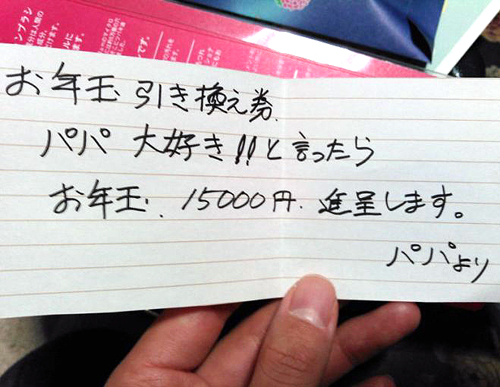 お年玉 引き換え券
パパ 大好き!!と言ったら
お年玉、15000円 進呈します。
パパより